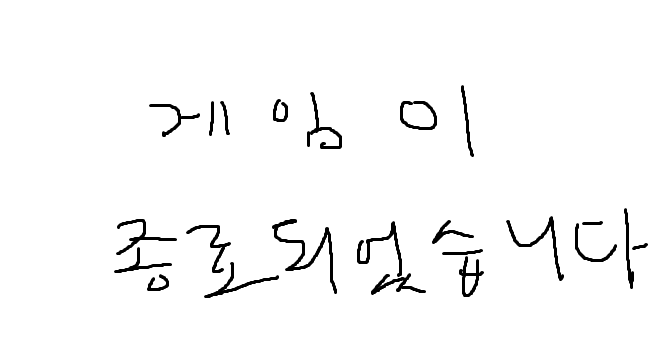 게임이
종료되었습니다